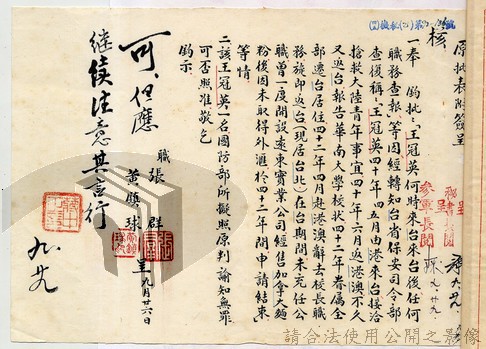 原批未附簽呈
核
一奉 鈞批:「王冠英何時來台來台後任何
職務查報」等因經轉知台省保安司令部
查復稱:「王冠英四十年四五月由港來台接洽
搶救大陸青年事宜四十年六月返港澳不久
又返台報告華南大學校狀四十二年眷屬全
部遷台居住四十二年四月赴港澳辭去校長職
務旋即返台(現居台北)在台期間未充任公
職曾一度開設遠東實業公司經售加拿大麵
粉後因未取得外滙於四十二年間申請結束」
等情
二該王冠英一名國防部所擬照原判諭知無罪
可否照准敬乞
鈞示
職 張 群
黃鎮球
呈 九月廿六日
秘書長閱
參軍長閱
呈
九、廿九
可、但應
繼續注意其言行
九、廿九
請合法使用公開之影像